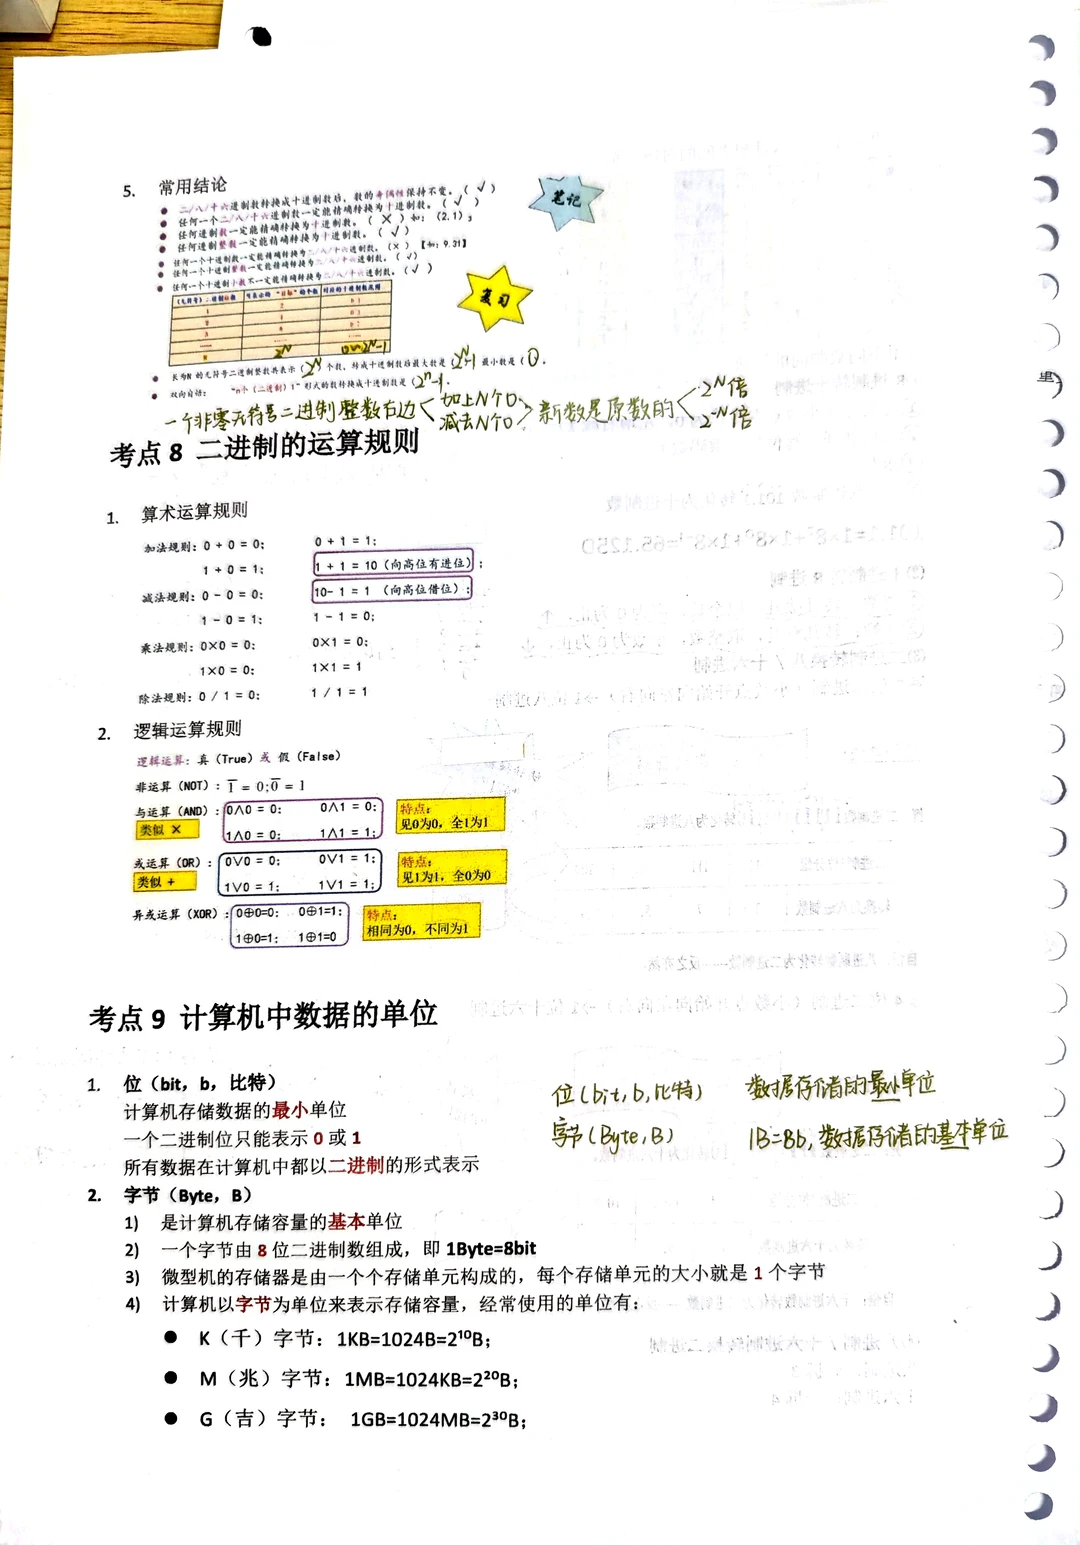 5. 常用结论
● 二/八/十六进制数转换成十进制数后，数的奇偶性保持不变。（√）
● 任何一个二/八/十六进制数一定能精确转换为十进制数。（√）
● 任何进制数一定能精确转换为十进制数。（×）如：（2.1）₃
● 任何进制整数一定能精确转换为十进制数。（√）
● 任何一个十进制数一定能精确转换为二/八/十六进制数。（×）【如：9.31】
● 任何一个十进制整数一定能精确转换为二/八/十六进制数。（√）
● 任何一个十进制小数不一定能精确转换为二/八/十六进制数。（√）
笔记
复习
1 2
2 4
3 8
N 2^N 0~2^N-1
● 长为N 的无符号二进制整数共表示（2^N）个数，转成十进制数后最大数是（2^N-1）最小数是（0）.
● 双向自悟： “n个（二进制）1”形式的数转换成十进制数是（2^n-1.
一个非零无符号二进制整数右边 加上N个0、 减去N个0 新数是原数的 2^N倍 2^-N倍
考点 8 二进制的运算规则
1. 算术运算规则
加法规则：0 + 0 = 0； 0 + 1 = 1；
1 + 0 = 1； 1 + 1 = 10（向高位有进位）；
减法规则：0 - 0 = 0； 10- 1 = 1 （向高位借位）；
1 - 0 = 1； 1 - 1 = 0；
乘法规则：0×0 = 0； 0×1 = 0；
1×0 = 0； 1×1 = 1
除法规则：0 / 1 = 0； 1 / 1 = 1
2. 逻辑运算规则
逻辑运算：真（True）或 假（False）
非运算（NOT）：1̅ = 0;0̅ = 1
与运算（AND）：0∧0 = 0； 0∧1 = 0； 特点：
类似 × 1∧0 = 0； 1∧1 = 1； 见0为0，全1为1
或运算（OR）：0∨0 = 0； 0∨1 = 1； 特点：
类似 + 1∨0 = 1； 1∨1 = 1； 见1为1，全0为0
异或运算（XOR）：0⊕0=0； 0⊕1=1； 特点：
1⊕0=1； 1⊕1=0 相同为0，不同为1
考点 9 计算机中数据的单位
1. 位（bit，b，比特）
计算机存储数据的最小单位
一个二进制位只能表示 0 或 1
所有数据在计算机中都以二进制的形式表示
位(bit,b,比特) 数据存储的最小单位
字节(Byte,B) 1B=8b,数据存储的基本单位
2. 字节（Byte，B）
1) 是计算机存储容量的基本单位
2) 一个字节由 8 位二进制数组成，即 1Byte=8bit
3) 微型机的存储器是由一个个存储单元构成的，每个存储单元的大小就是 1 个字节
4) 计算机以字节为单位来表示存储容量，经常使用的单位有：
● K（千）字节：1KB=1024B=2¹⁰B；
● M（兆）字节：1MB=1024KB=2²⁰B；
● G（吉）字节： 1GB=1024MB=2³⁰B；